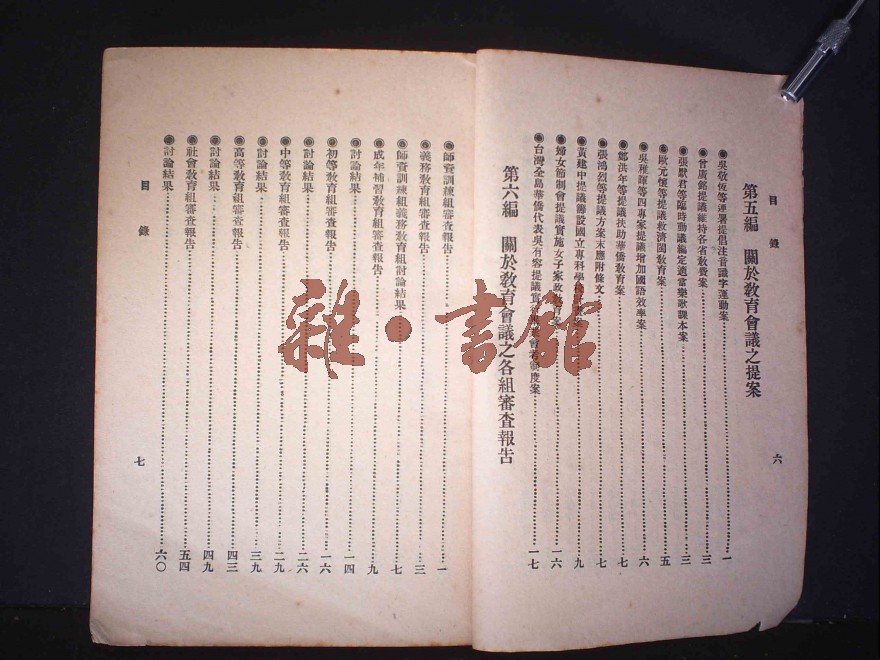 目錄
第五編　關於教育會議之提案
●吳敬恆等連署提倡注音識字運動案……一
●曾廣銘提議維持各省教費案……三
●張默君等臨時動議編定適當樂歌課本案……三
●歐元懷等提議救濟閩教育案……五
●吳稚暉等四專家提議增加國語效率案……六
●鄭洪年等提議扶助華僑教育案……七
●張鴻烈等提議方案末應附條文……七
●黃建中提議籌設國立專科學校……案……九
●婦女節制會提議實施女子家政教育案……一六
●台灣全島華僑代表吳有容提議實……會……制度案……一七
第六編　關於教育會議之各組審查報告
六
●師資訓練組審查報告……一
●義務教育組審查報告……三
●師資訓練組義務教育組討論結果……七
●成年補習教育組審查報告……九
●討論結果……一四
●初等教育組審查報告……一六
●討論結果……二六
●中等教育組審查報告……二九
●討論結果……三九
●高等教育組審查報告……四三
●討論結果……四九
●社會教育組審查報告……五四
●討論結果……六〇
目錄
七
雜·書館